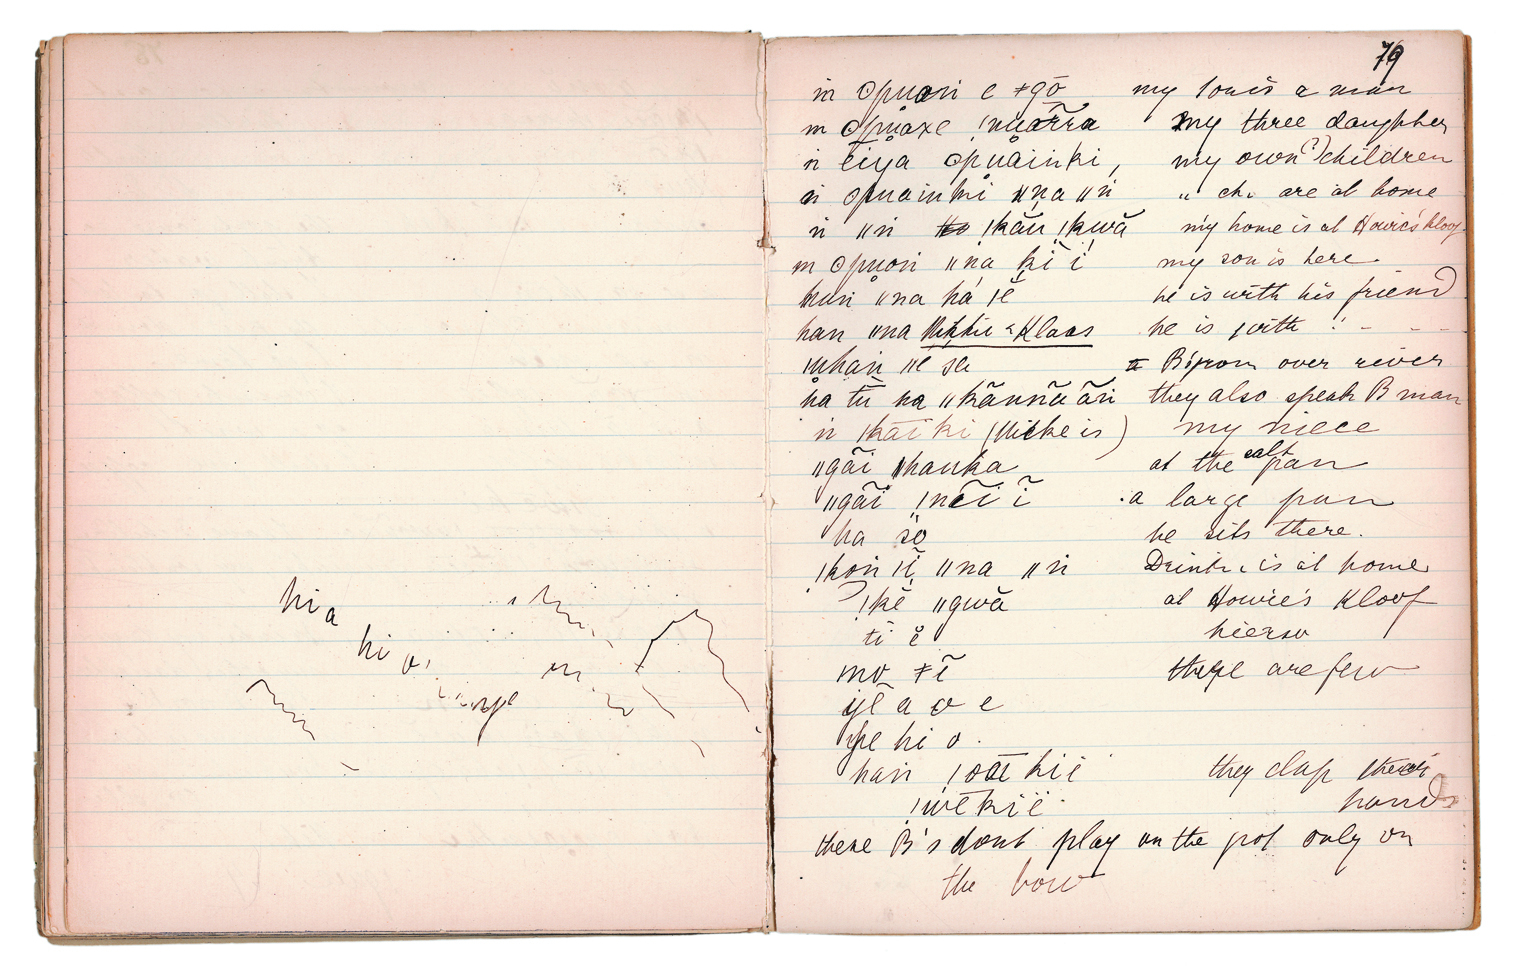 hi a
hi o
79
n ʘpuoni e ǂgō my son is a man
m ʘpuaxe ǃnuārra my three daughters
n ēiya ʘpuainki, my own (?) children
n ʘpuainki ǁna ǁn " ch. are at home
n ǁn ǀkāu ǀkwā my home is at Howie's kloof
m ʘpuoni ǁna ki i my son is here
han ǁna há ǀē he is with his friend
han ǁna & Klaas he is with " - - -
ǁē se B's from over river
ha tū ha ǁkānnā ān they also speak B man
n ǀkāi ki (Mieke is) my niece
ǁgãi ǀhauka at the salt pan
ǁgãi ǃnēi ĩ a large pan
ha so he sits there.
ǀkon ǀĩ ǁna ǁn Drink. is at home
ǀkē ǁgwā at Howie's Kloof
ti e hierso
mo ǂĩ there are few
a o e
ye hi o.
han kië they clap their
kië hands
these B's dont play on the pot only on
the bow